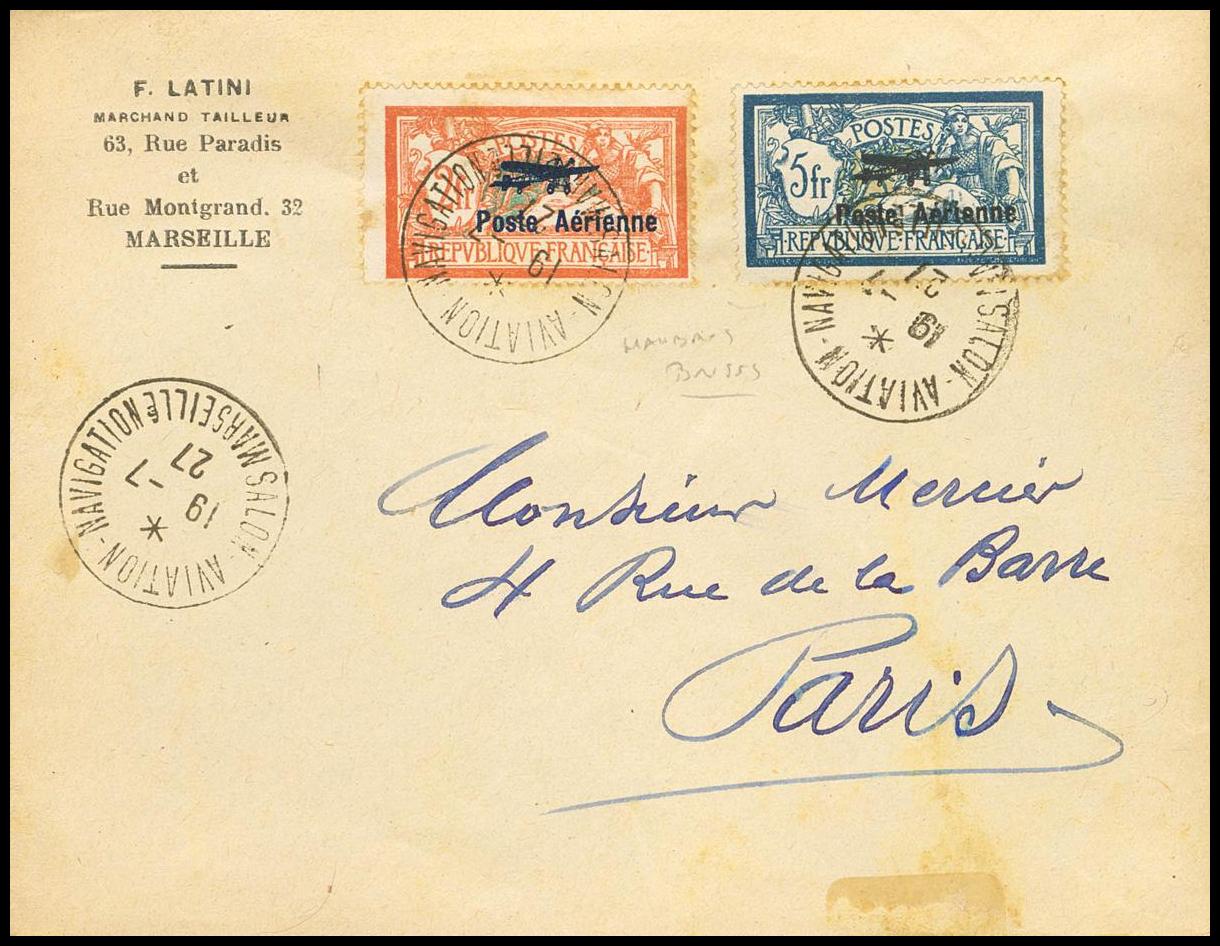 F. LATINI
MARCHAND TAILLEUR
63, Rue Paradis
et
Rue Montgrand. 32
MARSEILLE
POSTES
2fr
Poste Aérienne
REPVBLIQVE·FRANÇAISE
POSTES
5fr
Poste Aérienne
REPVBLIQVE·FRANÇAISE
NAVIGATION - AVIATION
19
NAVIGATION - SALON - AVIATION
19
SALON - AVIATION - NAVIGATION
MARSEILLE
19 - 7
27
Monsieur Mercier
4 Rue de la Barre
Paris